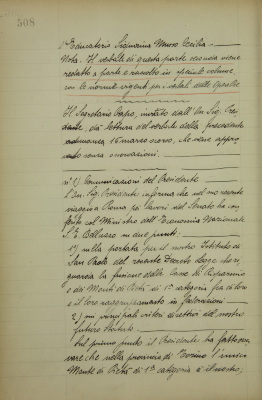 508
Nota. Il verbale di questa parte ancora viene
redatto a parte e raccolto in speciale volume
con le norme vigenti per i verbali delle Opere Pie
Il Segretario Capo, invitato dall'On. Sig. Pre-
sidente, dà lettura del verbale della precedente
adunanza 18 marzo scorso, che viene appro-
vato senza osservazioni.
n° 1) Comunicazioni del Presidente
L'On. Sig. Presidente informa che nel suo recente
viaggio a Roma pei lavori del Senato ha con-
ferito col Ministro dell'Economia Nazionale
S. E. Belluzzo in due punti:
1°) sulla portata per il nostro Istituto di
San Paolo del recente Decreto Legge che ri-
guarda la fusione delle Casse di Risparmio
e dei Monti di Pietà di 1ª categoria fra di loro
e il loro raggruppamento in Federazioni
2) sui principali criteri direttivi del nostro
futuro Statuto.
Sul primo punto il Presidente ha fatto osser-
vare che nella provincia di Torino l'unico
Monte di Pietà di 1ª categoria è il nostro,